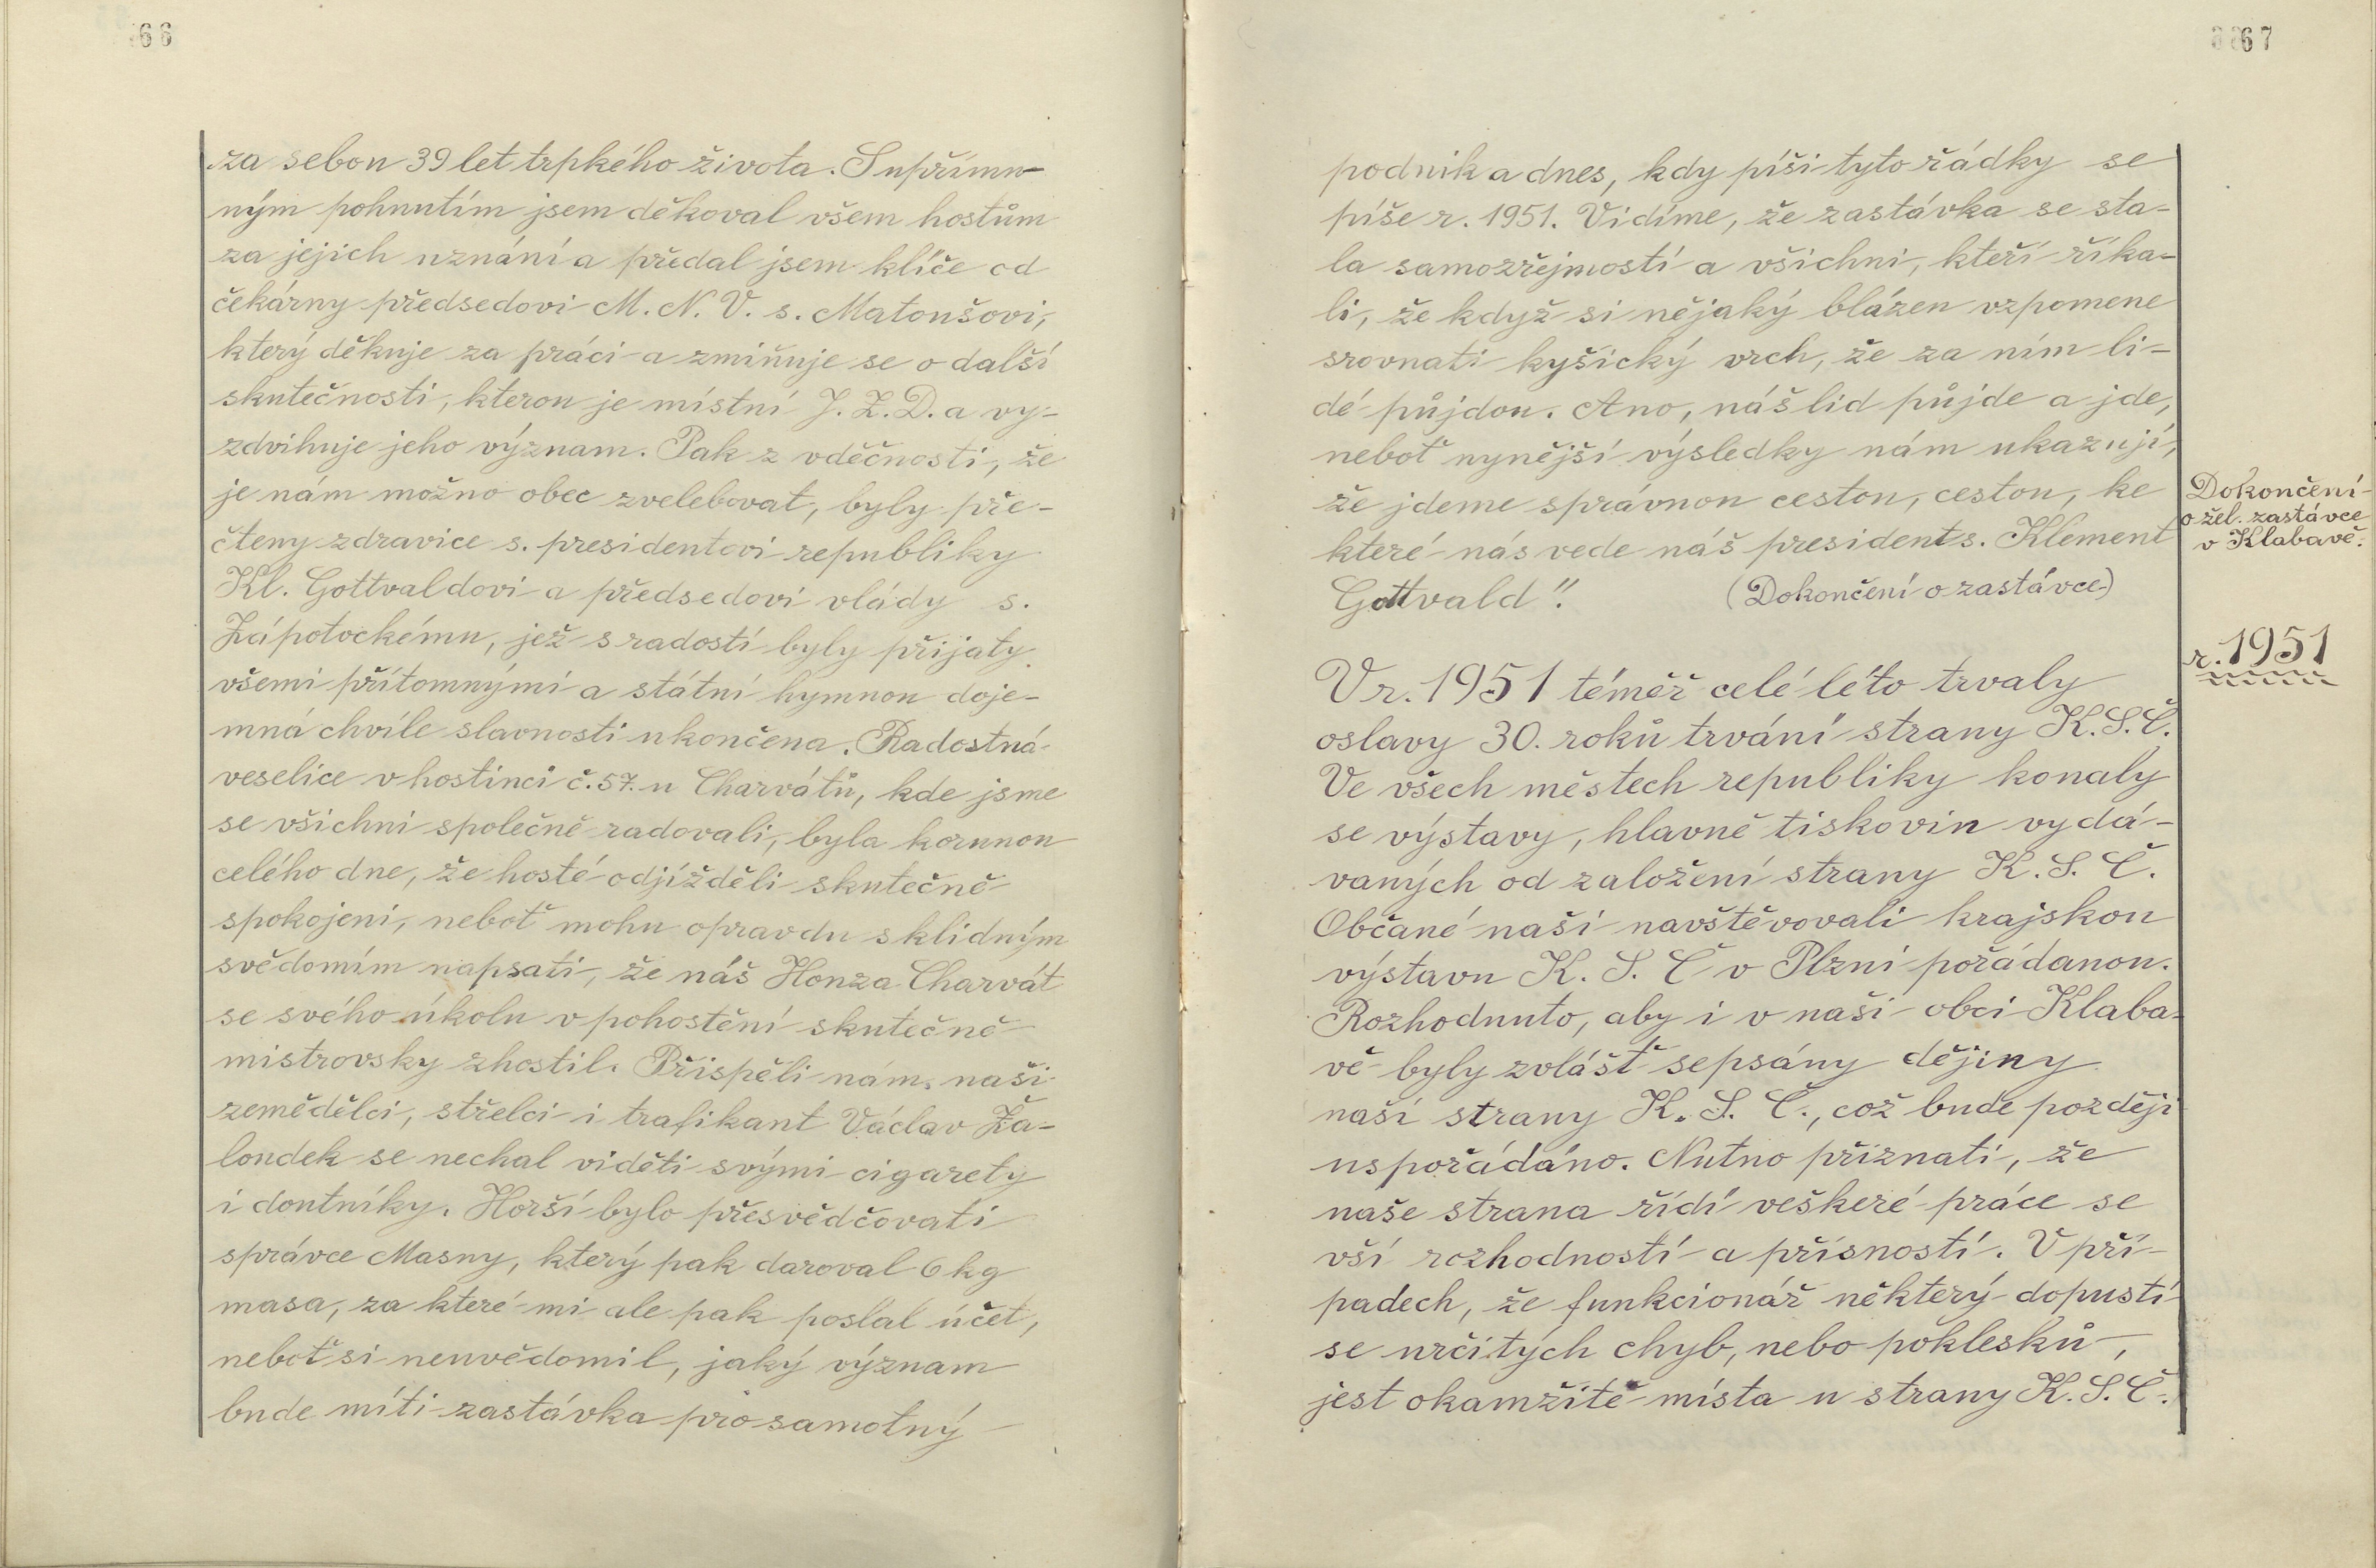 66
za sebou 39 let trpkého života. S upřímn-
ným pohnutím jsem děkoval všem hostům
za jejich uznání a předal jsem klíče od
čekárny předsedovi M. N. V. s. Matoušovi,
který děkuje za práci a zmiňuje se o další
skutečnosti, kterou je místní J. Z. D. a vy-
zdvihuje jeho význam. Pak z vděčnosti, že
je nám možno obec zvelebovat, byly pře-
čteny zdravice s. presidentovi republiky
Kl. Gottvaldovi a předsedovi vlády s.
Zápotockému, jež s radostí byly přijaty
všemi přítomnými a státní hymnou doje-
mná chvíle slavnosti ukončena. Radostná
veselice v hostinci č. 57. u Charvátů, kde jsme
se všichni společně radovali, byla korunou
celého dne, že hosté odjížděli skutečně
spokojeni, neboť mohu opravdu s klidným
svědomím napsati, že náš Honza Charvát
se svého úkolu v pohostění skutečně
mistrovsky zhostil. Přispěli nám naši
zemědělci, střelci i trafikant Václav Ža-
loudek se nechal viděti svými cigarety
i doutníky. Horší bylo přesvědčovati
správce Masny, který pak daroval 6 kg
masa, za které mi ale pak poslal účet,
neboť si neuvědomil, jaký význam
bude míti zastávka pro samotný
67
podnik a dnes, kdy píši tyto řádky se
píše r. 1951. Vidíme, že zastávka se sta-
la samozřejmostí a všichni, kteří říka-
li, že když si nějaký blázen vzpomene
srovnati kyšický vrch, že za ním li-
dé půjdou. Ano, náš lid půjde a jde,
neboť nynější výsledky nám ukazují,
že jdeme správnou cestou, cestou, ke
které nás vede náš president s. Klement
Gottvald". (Dokončení o zastávce)
Dokončení
o žel. zastávce
v Klabavě.
r. 1951
V r. 1951 téměř celé léto trvaly
oslavy 30. roků trvání strany K. S. Č.
Ve všech městech republiky konaly
se výstavy, hlavně tiskovin vydá-
vaných od založení strany K. S. Č.
Občané naši navštěvovali krajskou
výstavu K. S. Č v Plzni pořádanou.
Rozhodnuto, aby i v naši obci Klaba-
vě byly zvlášť sepsány dějiny
naší strany K. S. Č., což bude později
uspořádáno. Nutno přiznati, že
naše strana řídí veškeré práce se
vší rozhodností a přísností. V pří-
padech, že funkcionář některý dopustí
se určitých chyb, nebo poklesků,
jest okamžitě místa u strany K. S. Č.